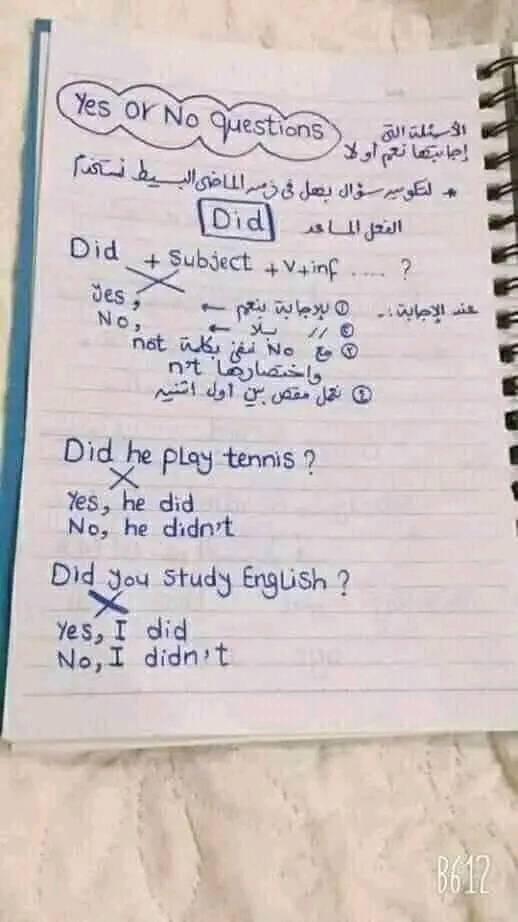 Yes or No questions
الأسئلة التى
إجابيتها نعم أو لا
* لتكوين سؤال بهل فى زمن الماضى البسيط نستخدم
الفعل المساعد Did
Did + Subject + V+inf ..... ?
عند الإجابة :. ① للإجابة بنعم ← Yes,
② // بلا ← No,
③ مع No ننفى بكلمة not
واختصارها n't
④ نعمل مقص بين أول اتنين
Did he play tennis ?
Yes, he did
No, he didn't
Did you study English ?
Yes, I did
No, I didn't
B612